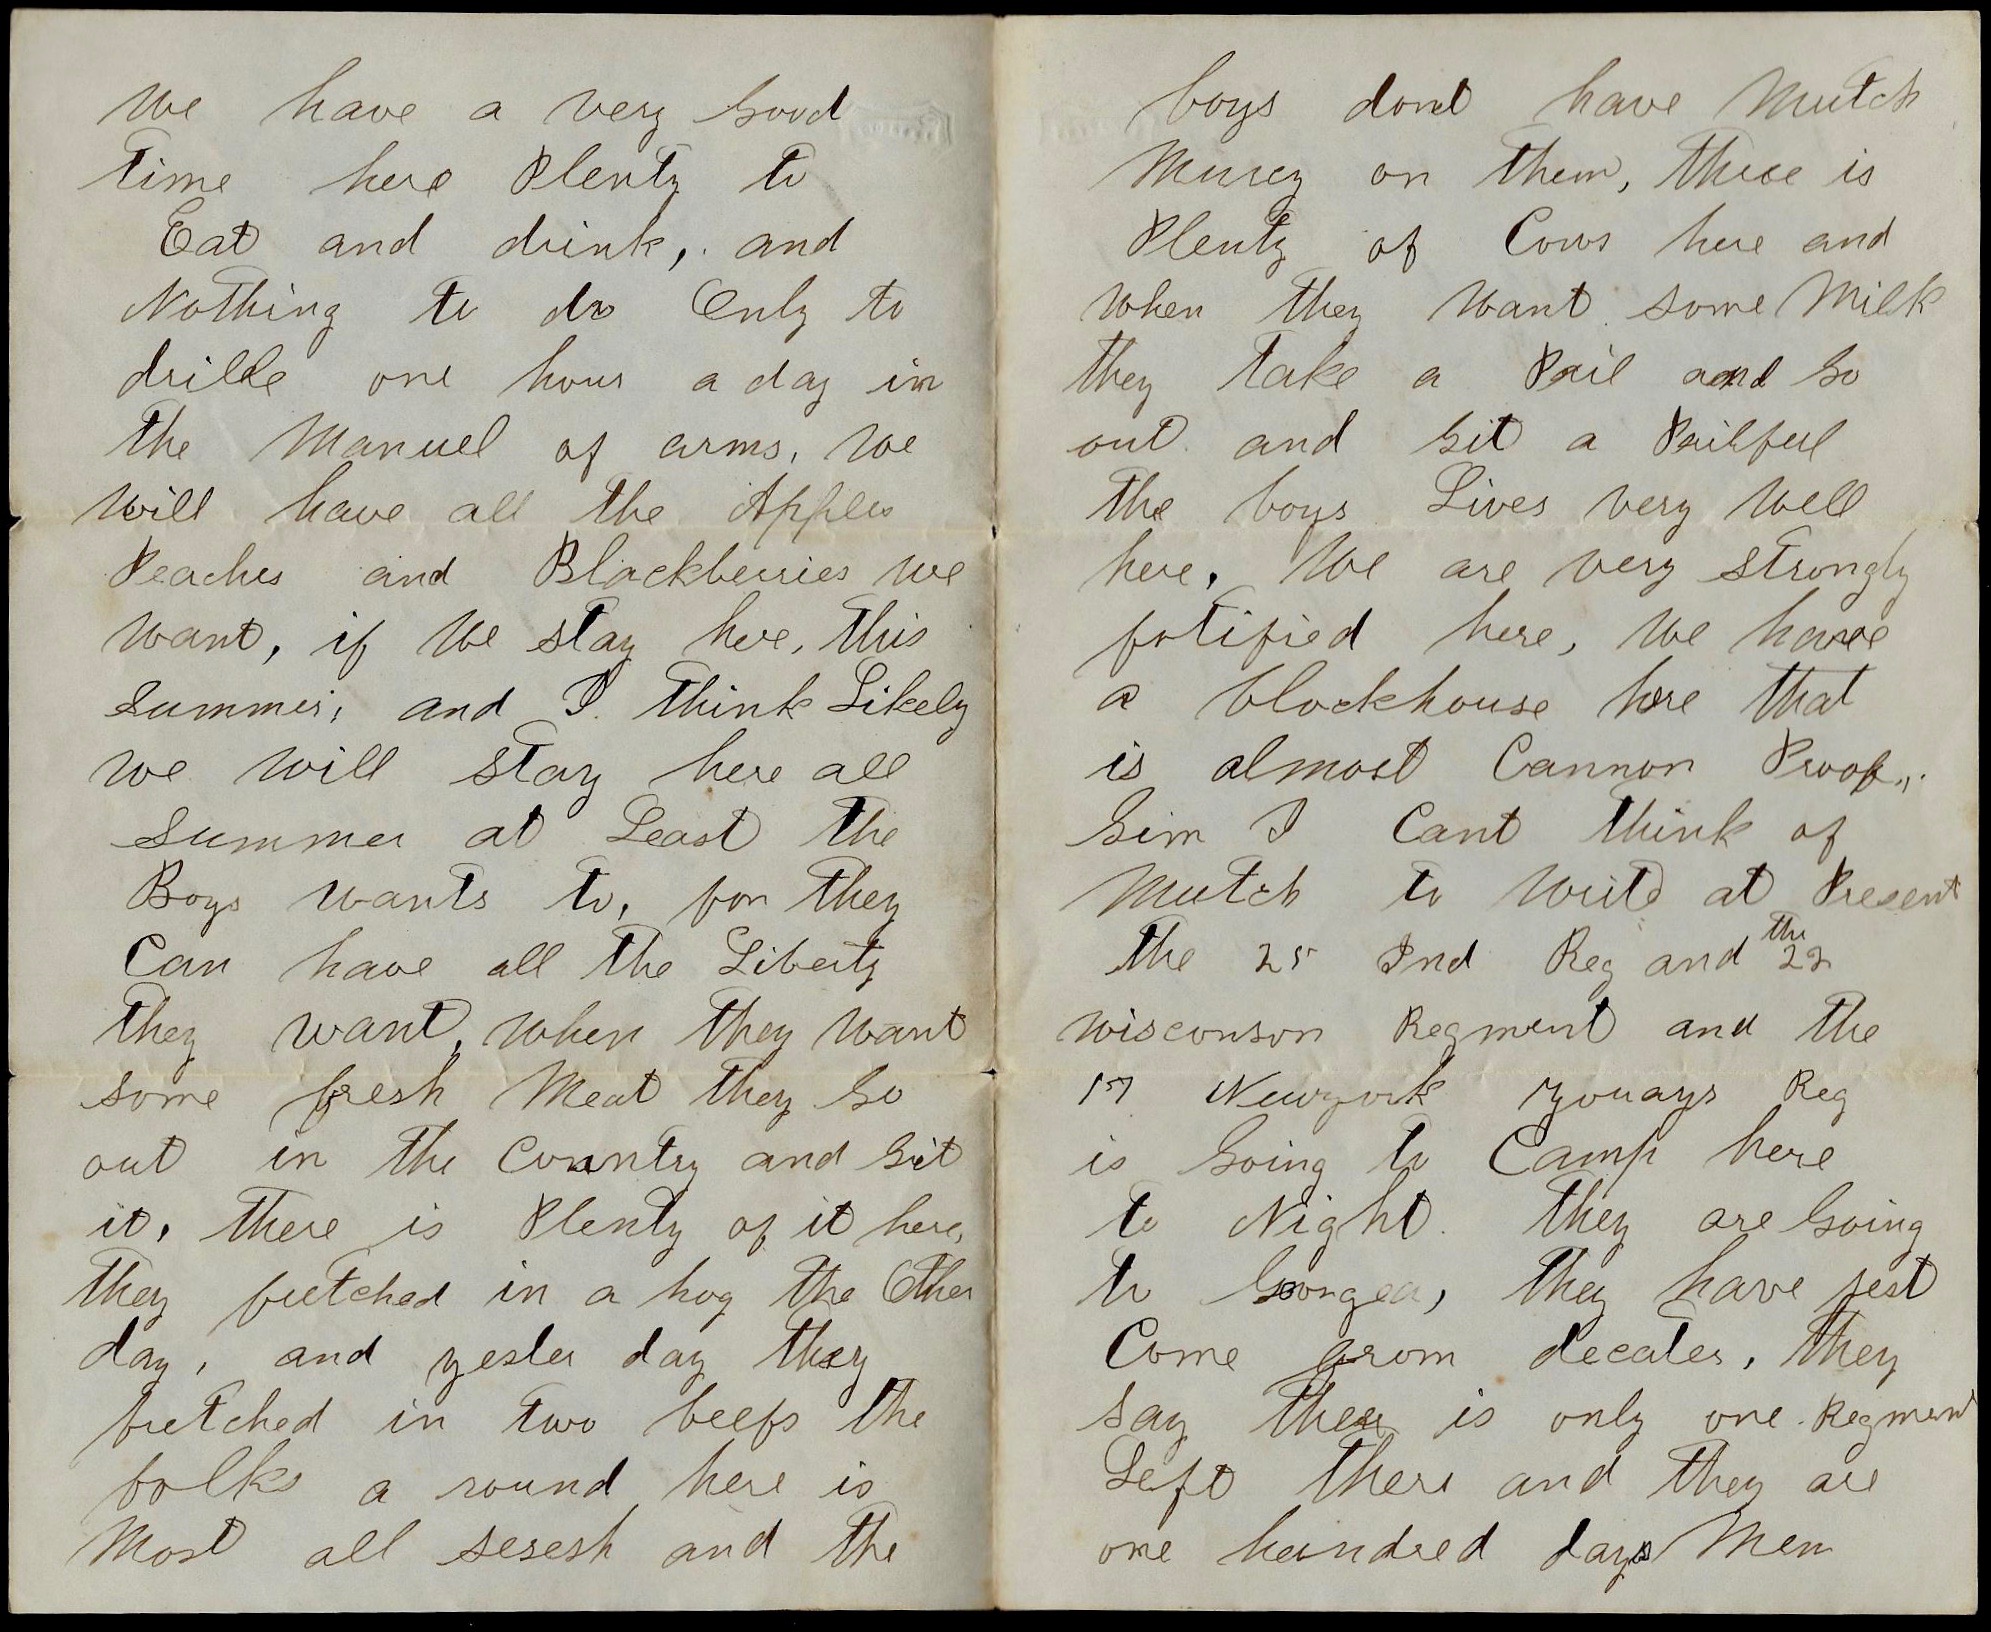 We have a very Good
time here Plenty to
Eat and drink, and
Nothing to do Only to
drille one hour a day in
the Manuel of arms, we
will have all the Apples
Peaches and Blackberries we
want, if we stay here, this
summer, and I think Likely
we will stay here all
summer at Least the
Boys wants to, for they
Can have all the Liberty
they want, when they want
some fresh Meat they Go
out in the Country and Git
it, there is Plenty of it here,
they fetched in a hog the Other
day, and yester day they
fretched in two beefs the
folks a round here is
Most all sesesh and the
boys dont have Mutch
Mursy on them, there is
Plenty of Cows here and
when they want some Milk
they take a Pail and Go
out and Git a Pailful
the boys Lives very well
here, We are very strongly
fotified here, we have
a blockhouse here that
is almost Cannon Proof,
Gim I Cant think of
Mutch to write at Present
the 25 Ind Reg and the 22
wisconson Regment and the
17 Newyork zouays Reg
is Going to Camp here
to Night. they are Going
to Gorgea, they have jest
Come from decater, they
say ther is only one Regment
Left there and they are
one hundred days Men